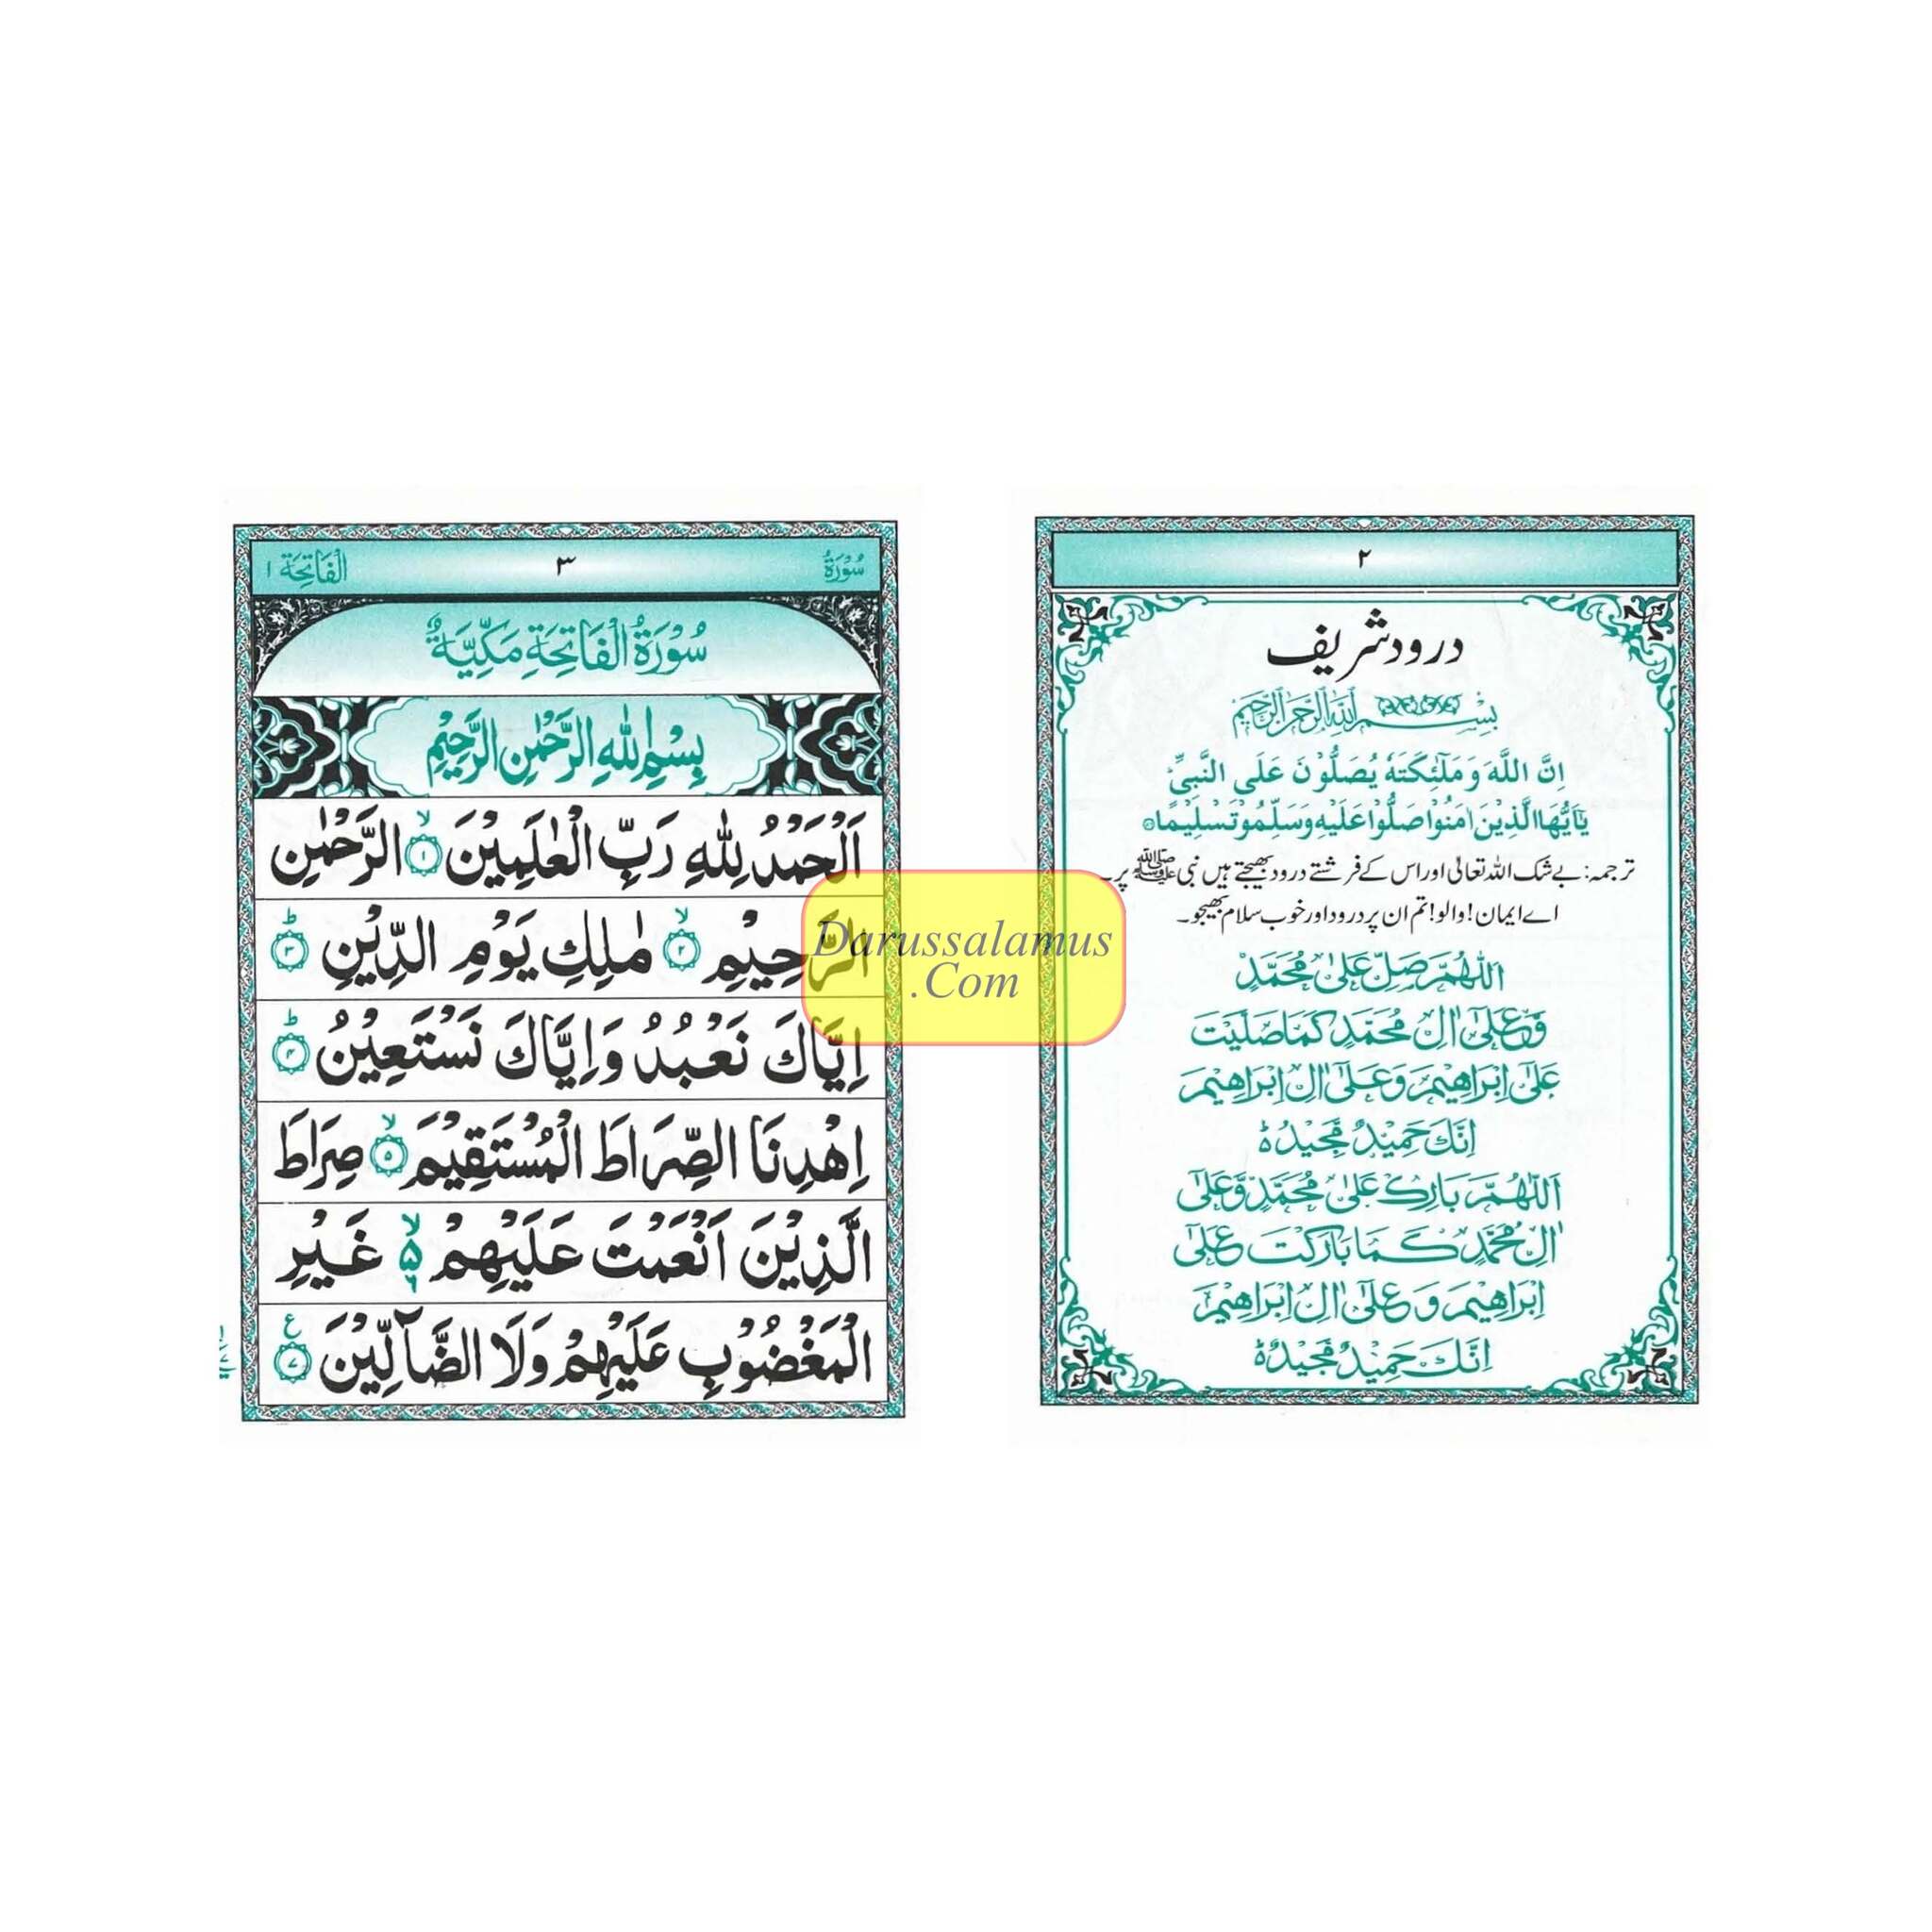 ٢
درود شریف
بِسْمِ اللهِ الرَّحْمٰنِ الرَّحِيْمِ
اِنَّ اللَّهَ وَ مَلَٰٓئِكَتَهٗ يُصَلُّوْنَ عَلَى النَّبِيِّ
يٰٓاَيُّهَا الَّذِيْنَ اٰمَنُوْا صَلُّوْا عَلَيْهِ وَسَلِّمُوْتَسْلِيْمًا
ترجمہ: بے شک اللہ تعالیٰ اور اس کے فرشتے درود بھیجتے ہیں نبی ﷺ پر۔
اے ایمان! والو! تم ان پر درود اور خوب سلام بھیجو۔
اَللّٰهُمَّ صَلِّ عَلٰى مُحَمَّدٍ
وَّعَلٰٓى اٰلِ مُحَمَّدٍ كَمَا صَلَّيْتَ
عَلٰٓى اِبْرَاهِيْمَ وَعَلٰٓى اٰلِ اِبْرَاهِيْمَ
اِنَّكَ حَمِيْدٌ مَّجِيْدٌ ؕ
اَللّٰهُمَّ بَارِكْ عَلٰى مُحَمَّدٍ وَّعَلٰٓى
اٰلِ مُحَمَّدٍ كَمَا بَارَكْتَ عَلٰٓى
اِبْرَاهِيْمَ وَ عَلٰٓى اٰلِ اِبْرَاهِيْمَ
اِنَّكَ حَمِيْدٌ مَّجِيْدٌ ؕ
سُوْرَةُ ٣ اَلْفَاتِحَة ١
سُوْرَةُ الْفَاتِحَةِ مَكِّيَّةٌ
بِسْمِ اللهِ الرَّحْمٰنِ الرَّحِيْمِ
اَلْحَمْدُ لِلّٰهِ رَبِّ الْعٰلَمِيْنَ ۙ ١ الرَّحْمٰنِ
الرَّحِيْمِ ۙ ٢ مٰلِكِ يَوْمِ الدِّيْنِ ؕ ٣
اِيَّاكَ نَعْبُدُ وَاِيَّاكَ نَسْتَعِيْنُ ؕ ٤
اِهْدِنَا الصِّرَاطَ الْمُسْتَقِيْمَ ۙ ٥ صِرَاطَ
الَّذِيْنَ اَنْعَمْتَ عَلَيْهِمْ ۙ ۵ ٦ غَيْرِ
الْمَغْضُوْبِ عَلَيْهِمْ وَلَا الضَّآلِّيْنَ ع ٧
Darussalamus
.Com